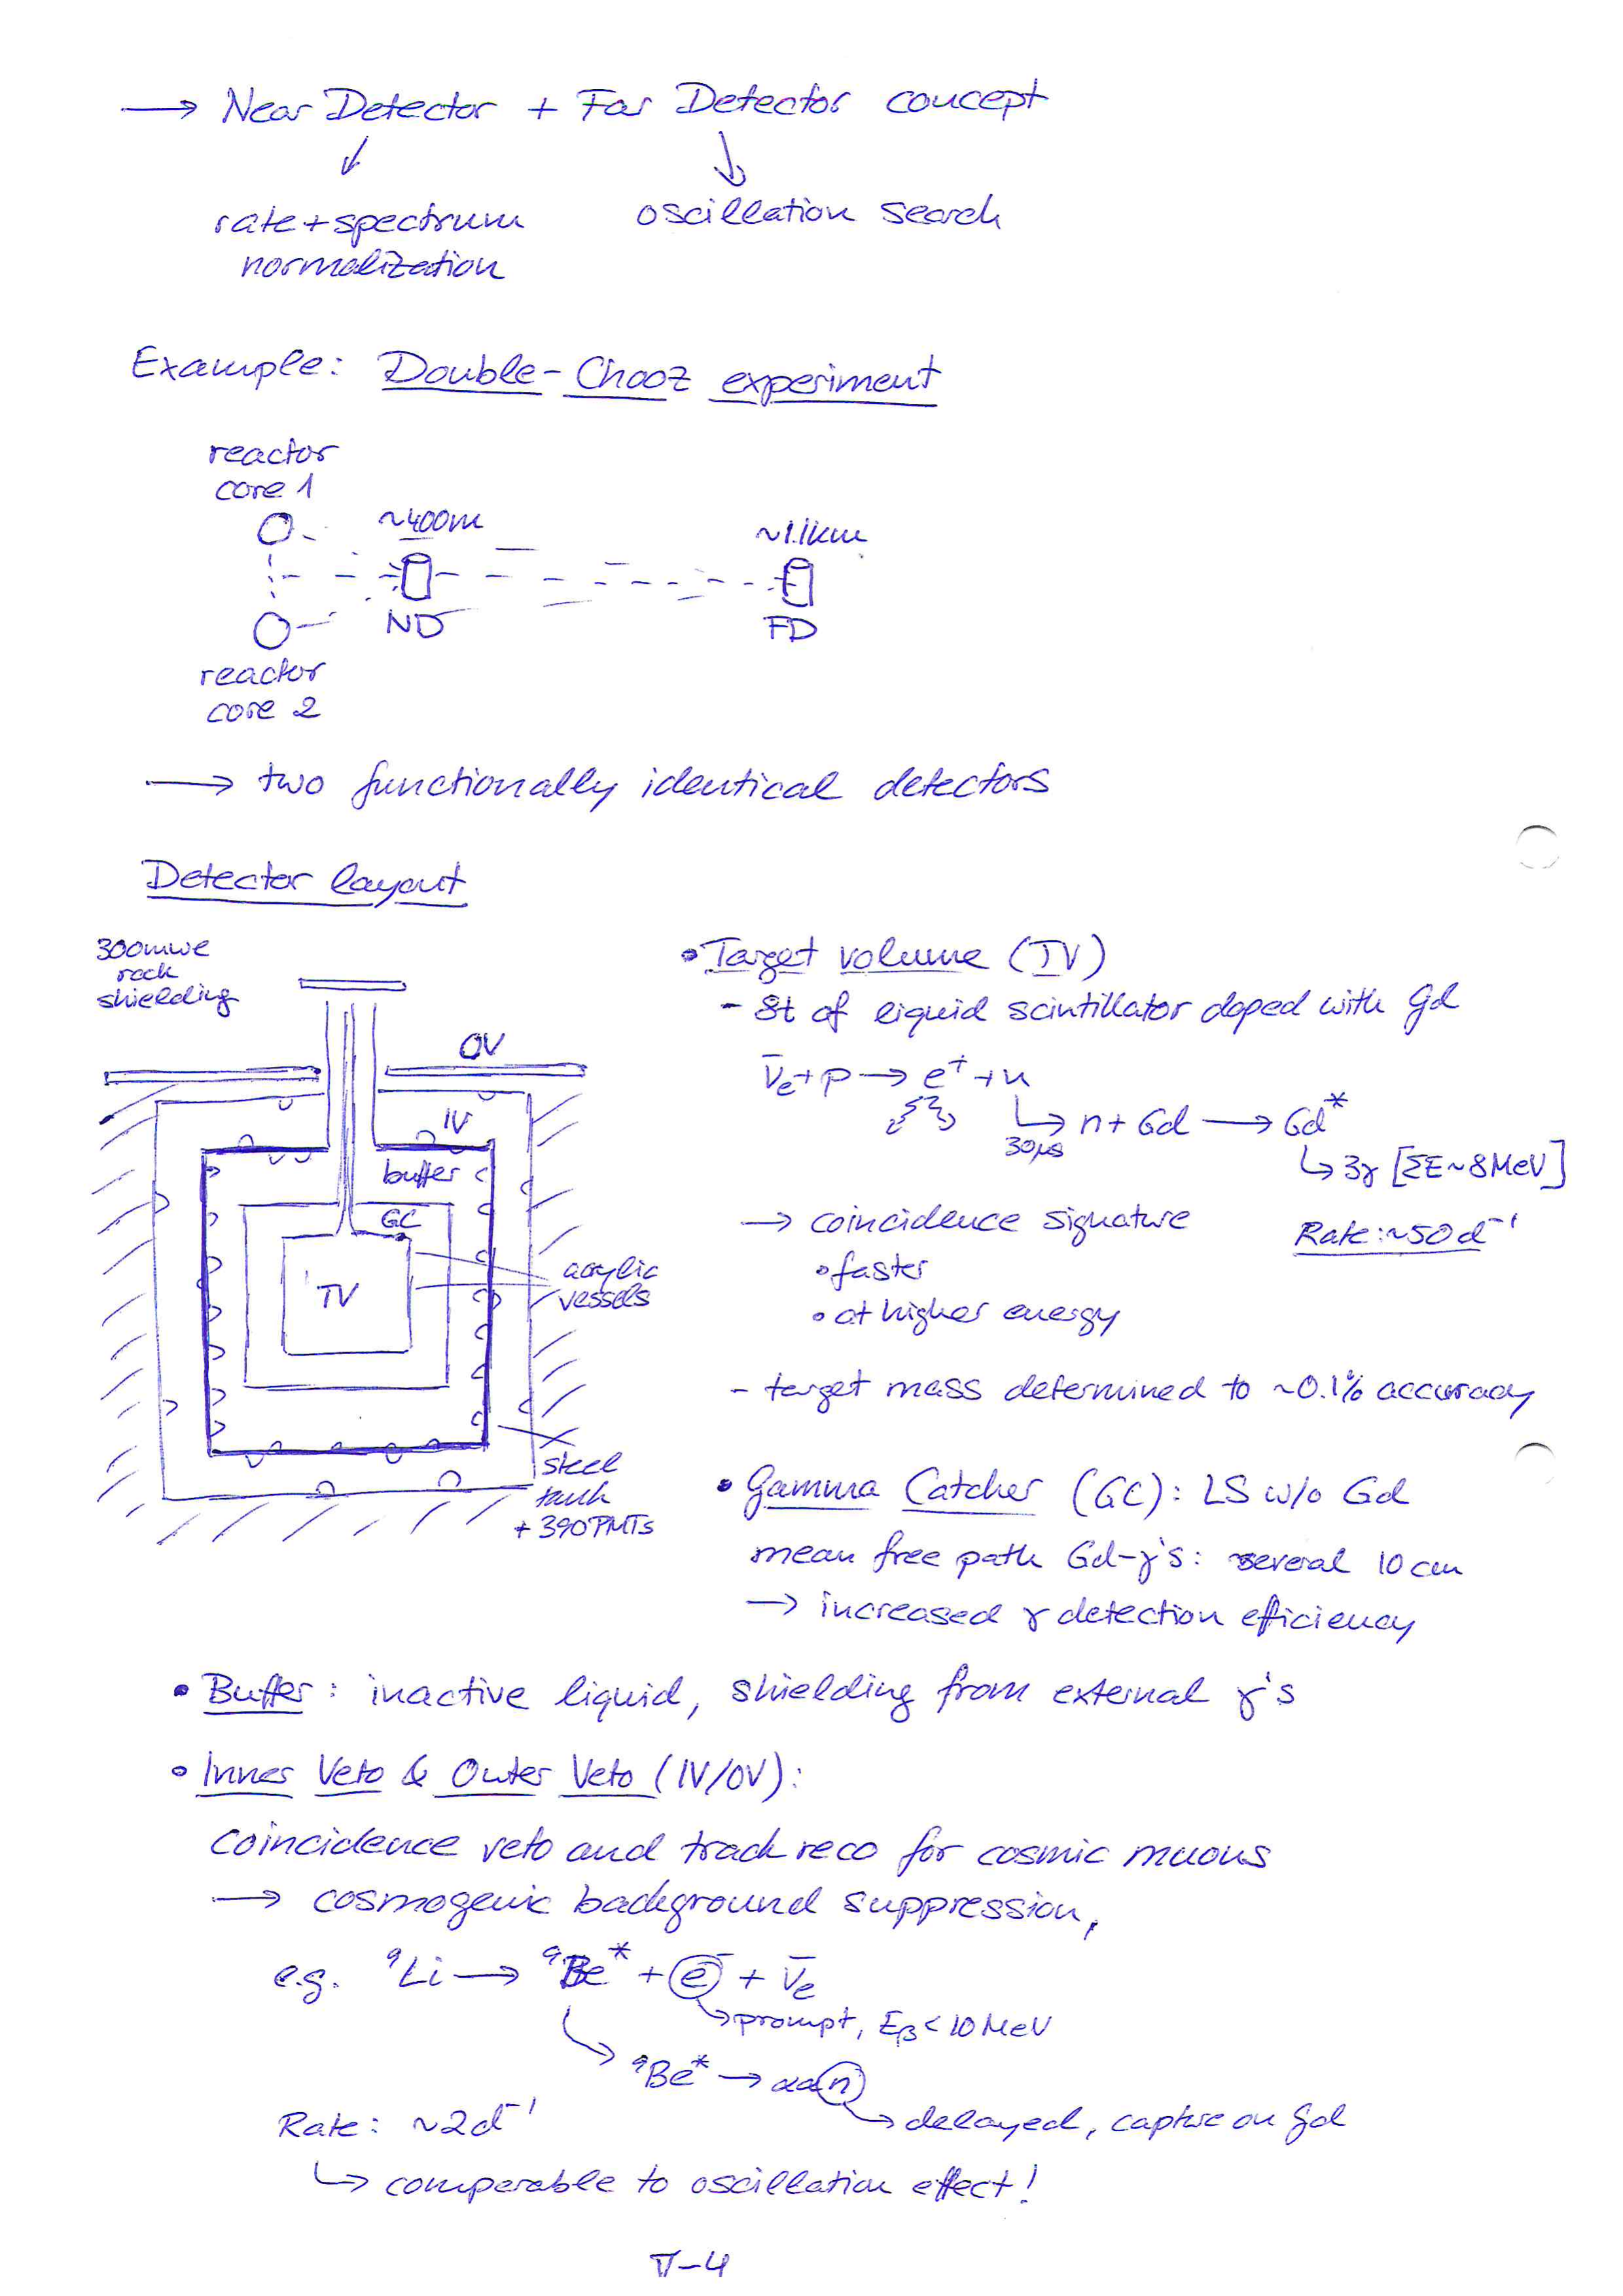 → Near Detector + Far Detector concept
rate + spectrum normalization
oscillation search
Example: Double-Chooz experiment
reactor
core 1
~400m
~1.1km
ND
FD
reactor
core 2
→ two functionally identical detectors
Detector layout
300mwe
rock
shielding
OV
IV
buffer
GC
TV
acrylic
vessels
steel
tank
+ 390 PMTs
• Target volume (TV)
- 8t of liquid scintillator doped with Gd
ν̄e + p → e⁺ + n
↳ n + Gd → Gd*
30μs
↳ 3γ [ΣE ~ 8 MeV]
→ coincidence signature
Rate: ~50 d⁻¹
• faster
• at higher energy
- target mass determined to ~0.1% accuracy
• Gamma Catcher (GC): LS w/o Gd
mean free path Gd-γ's: several 10 cm
→ increased γ detection efficiency
• Buffer: inactive liquid, shielding from external γ's
• Inner Veto & Outer Veto (IV/OV):
coincidence veto and track reco for cosmic muons
→ cosmogenic background suppression,
e.g. ⁹Li → ⁹Be* + e⁻ + ν̄e
↳ prompt, Eβ < 10 MeV
↳ ⁹Be* → ααn
Rate: ~2d⁻¹
↳ delayed, capture on Gd
↳ comparable to oscillation effect!
V-4